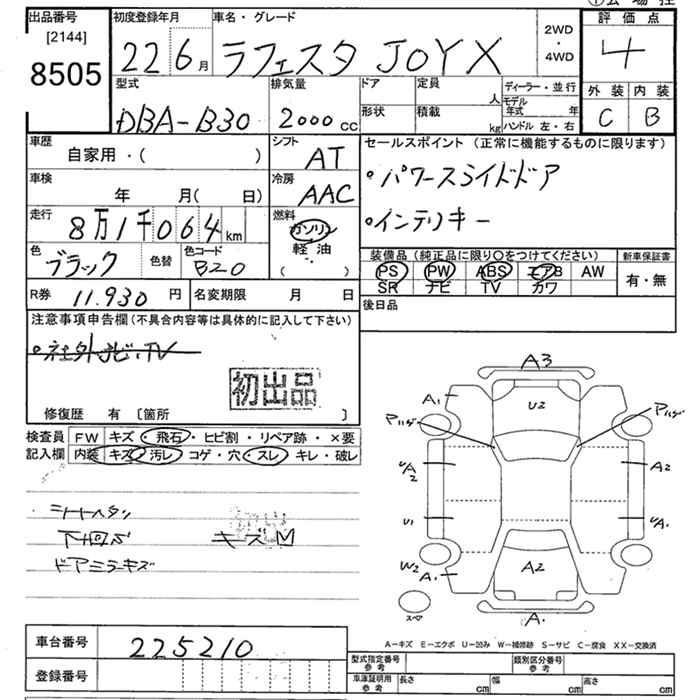 出品番号
[2144]
8505
初度登録年月
22 6月
車名・グレード
ラフェスタ JOYX
2WD
・
4WD
評価点
4
外装 内装
C B
型式
DBA-B30
排気量
2000 cc
ドア
形状
定員
人
積載
kg
ディーラー・並行
モデル年式 年
ハンドル 左・右
車歴
自家用・( )
シフト
AT
車検
年 月( 日)
冷房
AAC
走行
8万1千064km
燃料
ガソリン
軽油
( )
色
ブラック
色替
色コード
B20
R券 11,930 円
名変期限 月 日
セールスポイント (正常に機能するものに限ります)
・パワースライドドア
・インテリキー
装備品 (純正品に限り○をつけてください)
新車保証書
PS PW ABS エアB AW
SR ナビ TV カワ
有・無
後日品
注意事項申告欄 (不具合内容等は具体的に記入して下さい)
初出品
修復歴 有 [箇所 ]
検査員記入欄
FW キズ・飛石・ヒビ割・リペア跡・×要
内装 キズ・汚レ・コゲ・穴・スレ・キレ・破レ
シートヘタリ
キズM
ドアミラーキズ
A3
A1
U2
A2
A2
U1
W2
A1
A2
A
スペア
A-キズ E-エクボ U-凹み W-補修跡 S-サビ C-腐食 XX-交換済
車台番号 225210
登録番号
型式指定番号
参考
類別区分番号
参考
車庫証明用
参考
長さ cm
幅 cm
高さ cm